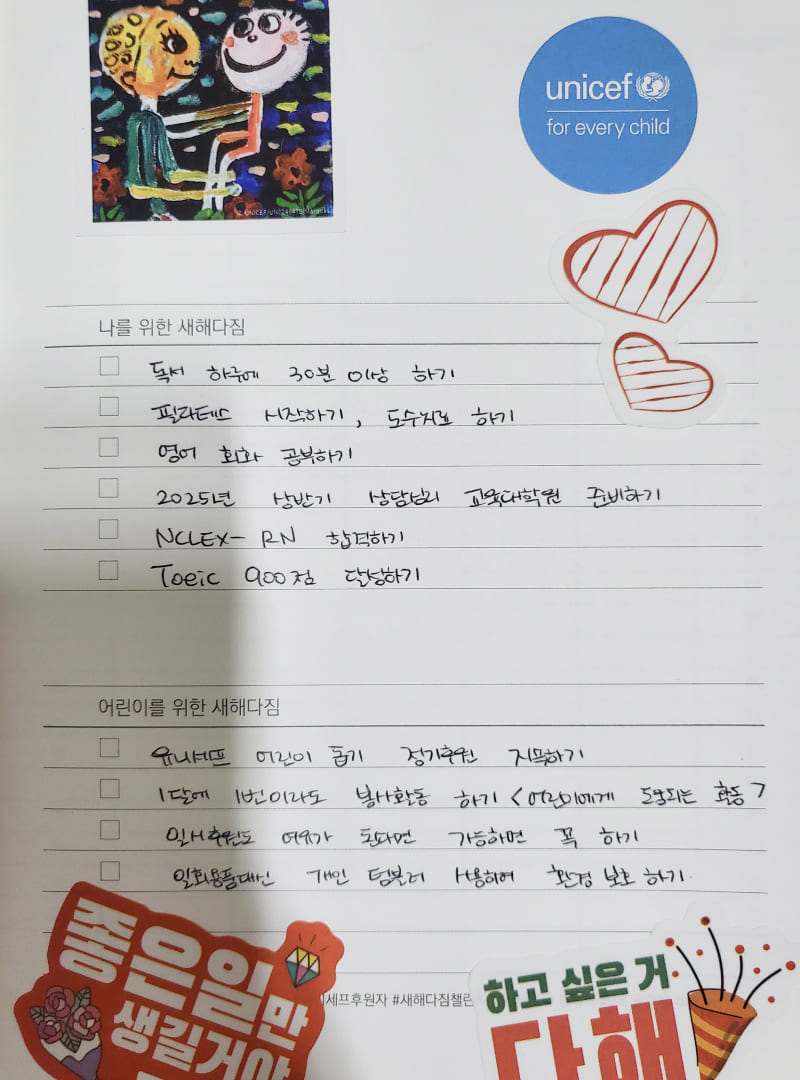 unicef
for every child
나를 위한 새해다짐
독서 하루에 30분 이상 하기
필라테스 시작하기, 도수치료 하기
영어 회화 공부하기
2025년 상반기 상담심리 교육대학원 준비하기
NCLEX-RN 합격하기
Toeic 900점 달성하기
어린이를 위한 새해다짐
유니세프 어린이 돕기 정기후원 지속하기
1달에 1번이라도 봉사활동 하기 <어린이에게 도움되는 활동>
일시후원도 여유가 된다면 가능하면 꼭 하기
일회용품대신 개인 텀블러 사용하여 환경 보호 하기
세프후원자 #새해다짐챌린
좋은일만
생길거야
하고 싶은 거
다해